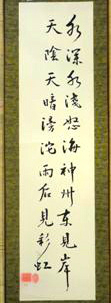 水深水浅怒海神州东見岸
天陰天暗滂沱雨后見彩虹